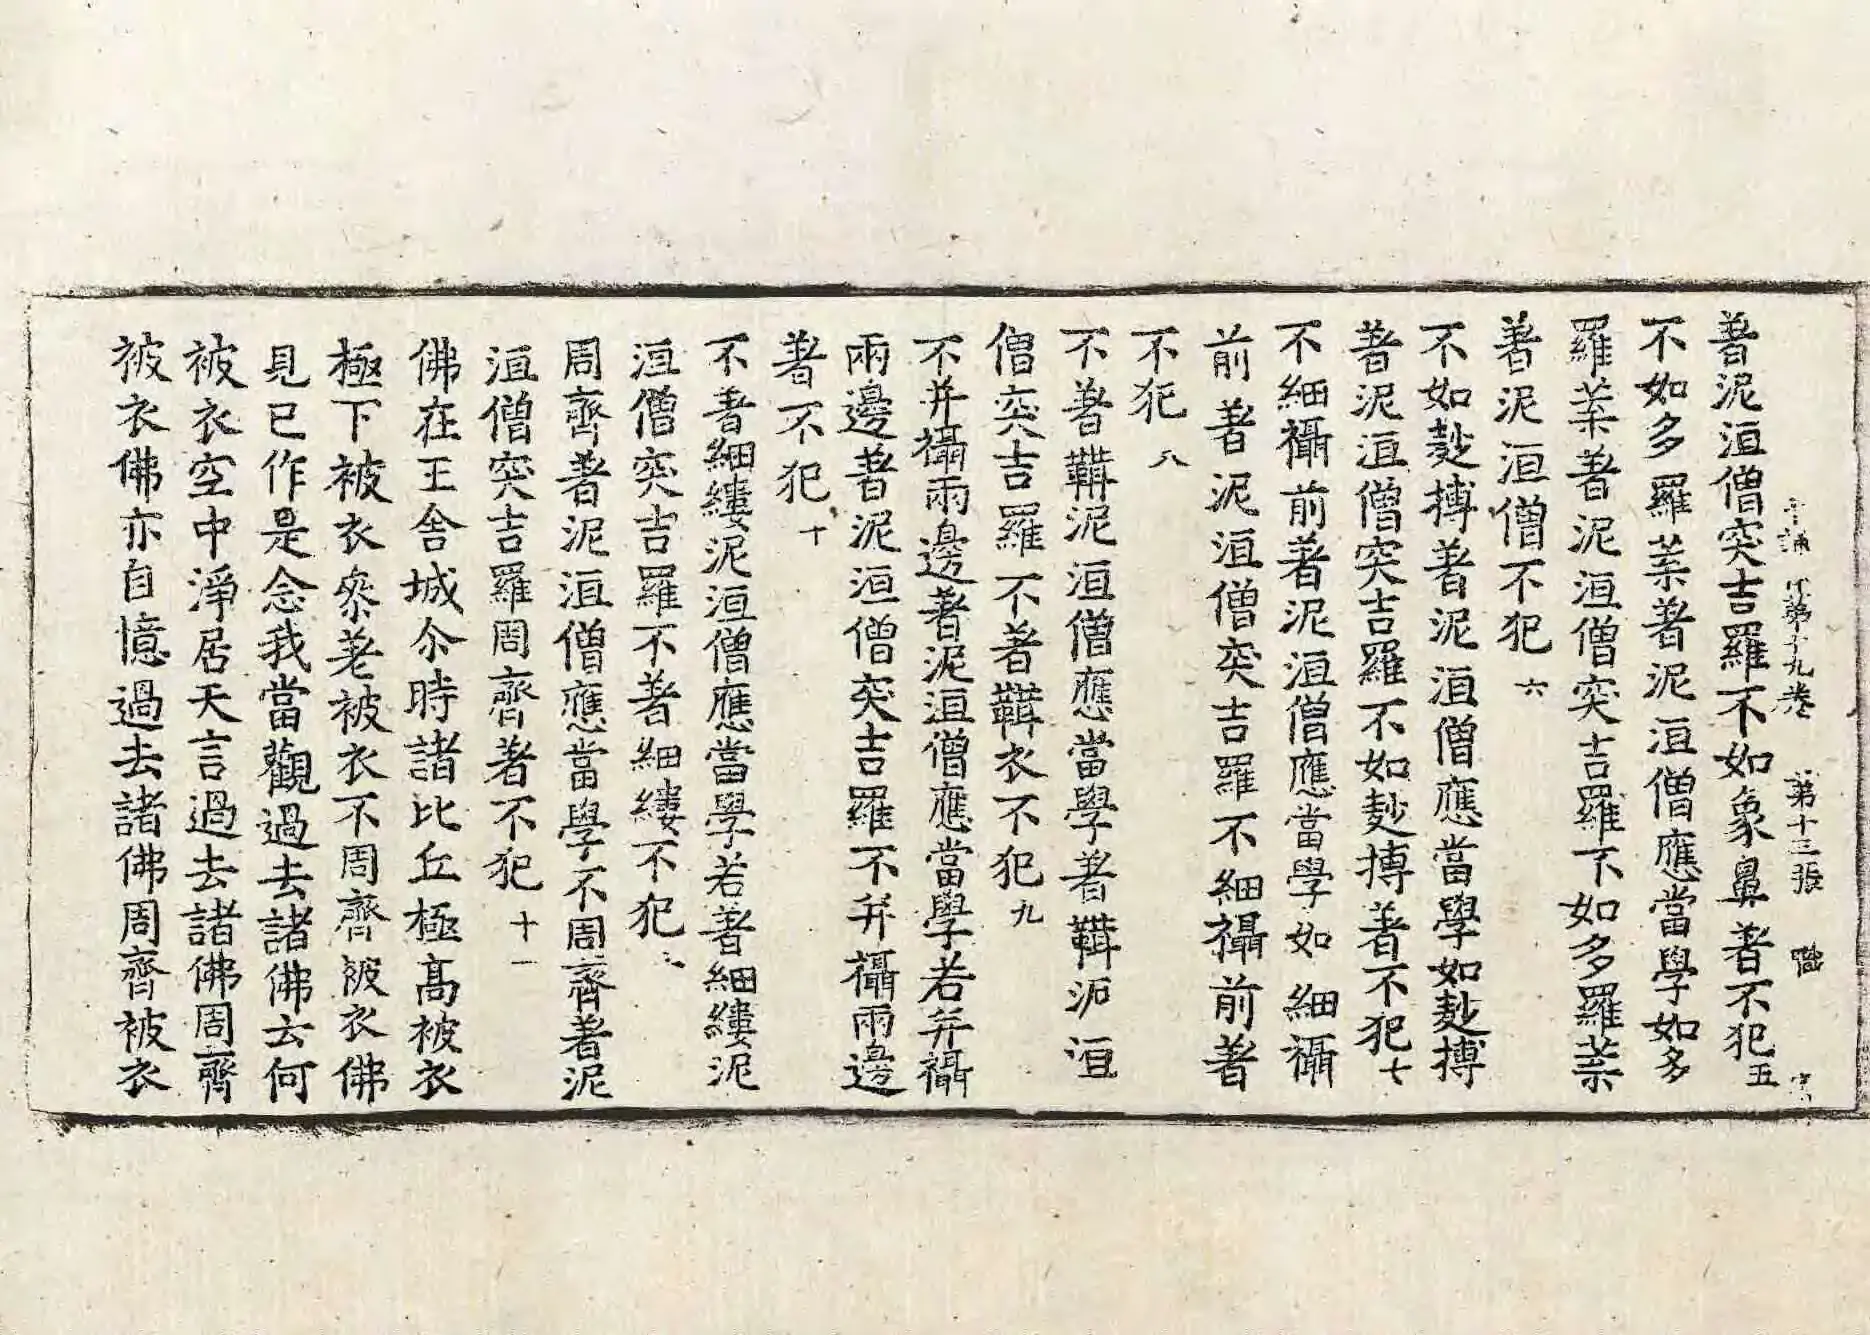 十誦律第十九卷 第十三張
著泥洹僧突吉羅不如象鼻著不犯五
不如多羅葉著泥洹僧應當學如多
羅葉著泥洹僧突吉羅不如多羅葉
著泥洹僧不犯六
不如麨摶著泥洹僧應當學如麨摶
著泥洹僧突吉羅不如麨摶著不犯七
不細襵前著泥洹僧應當學如細襵
前著泥洹僧突吉羅不細襵前著
不犯八
不著鞲泥洹僧應當學著鞲泥洹
僧突吉羅不著鞲衣不犯九
不并襵兩邊著泥洹僧應當學若并襵
兩邊著泥洹僧突吉羅不并襵兩邊
著不犯十
不著細縷泥洹僧應當學若著細縷泥
洹僧突吉羅不著細縷不犯
周齊著泥洹僧應當學不周齊著泥
洹僧突吉羅周齊著不犯十一
佛在王舍城尒時諸比丘極高被衣
極下被衣叅差被衣不周齊被衣佛
見已作是念我當觀過去諸佛云何
被衣空中淨居天言過去諸佛周齊
被衣佛亦自憶過去諸佛周齊被衣